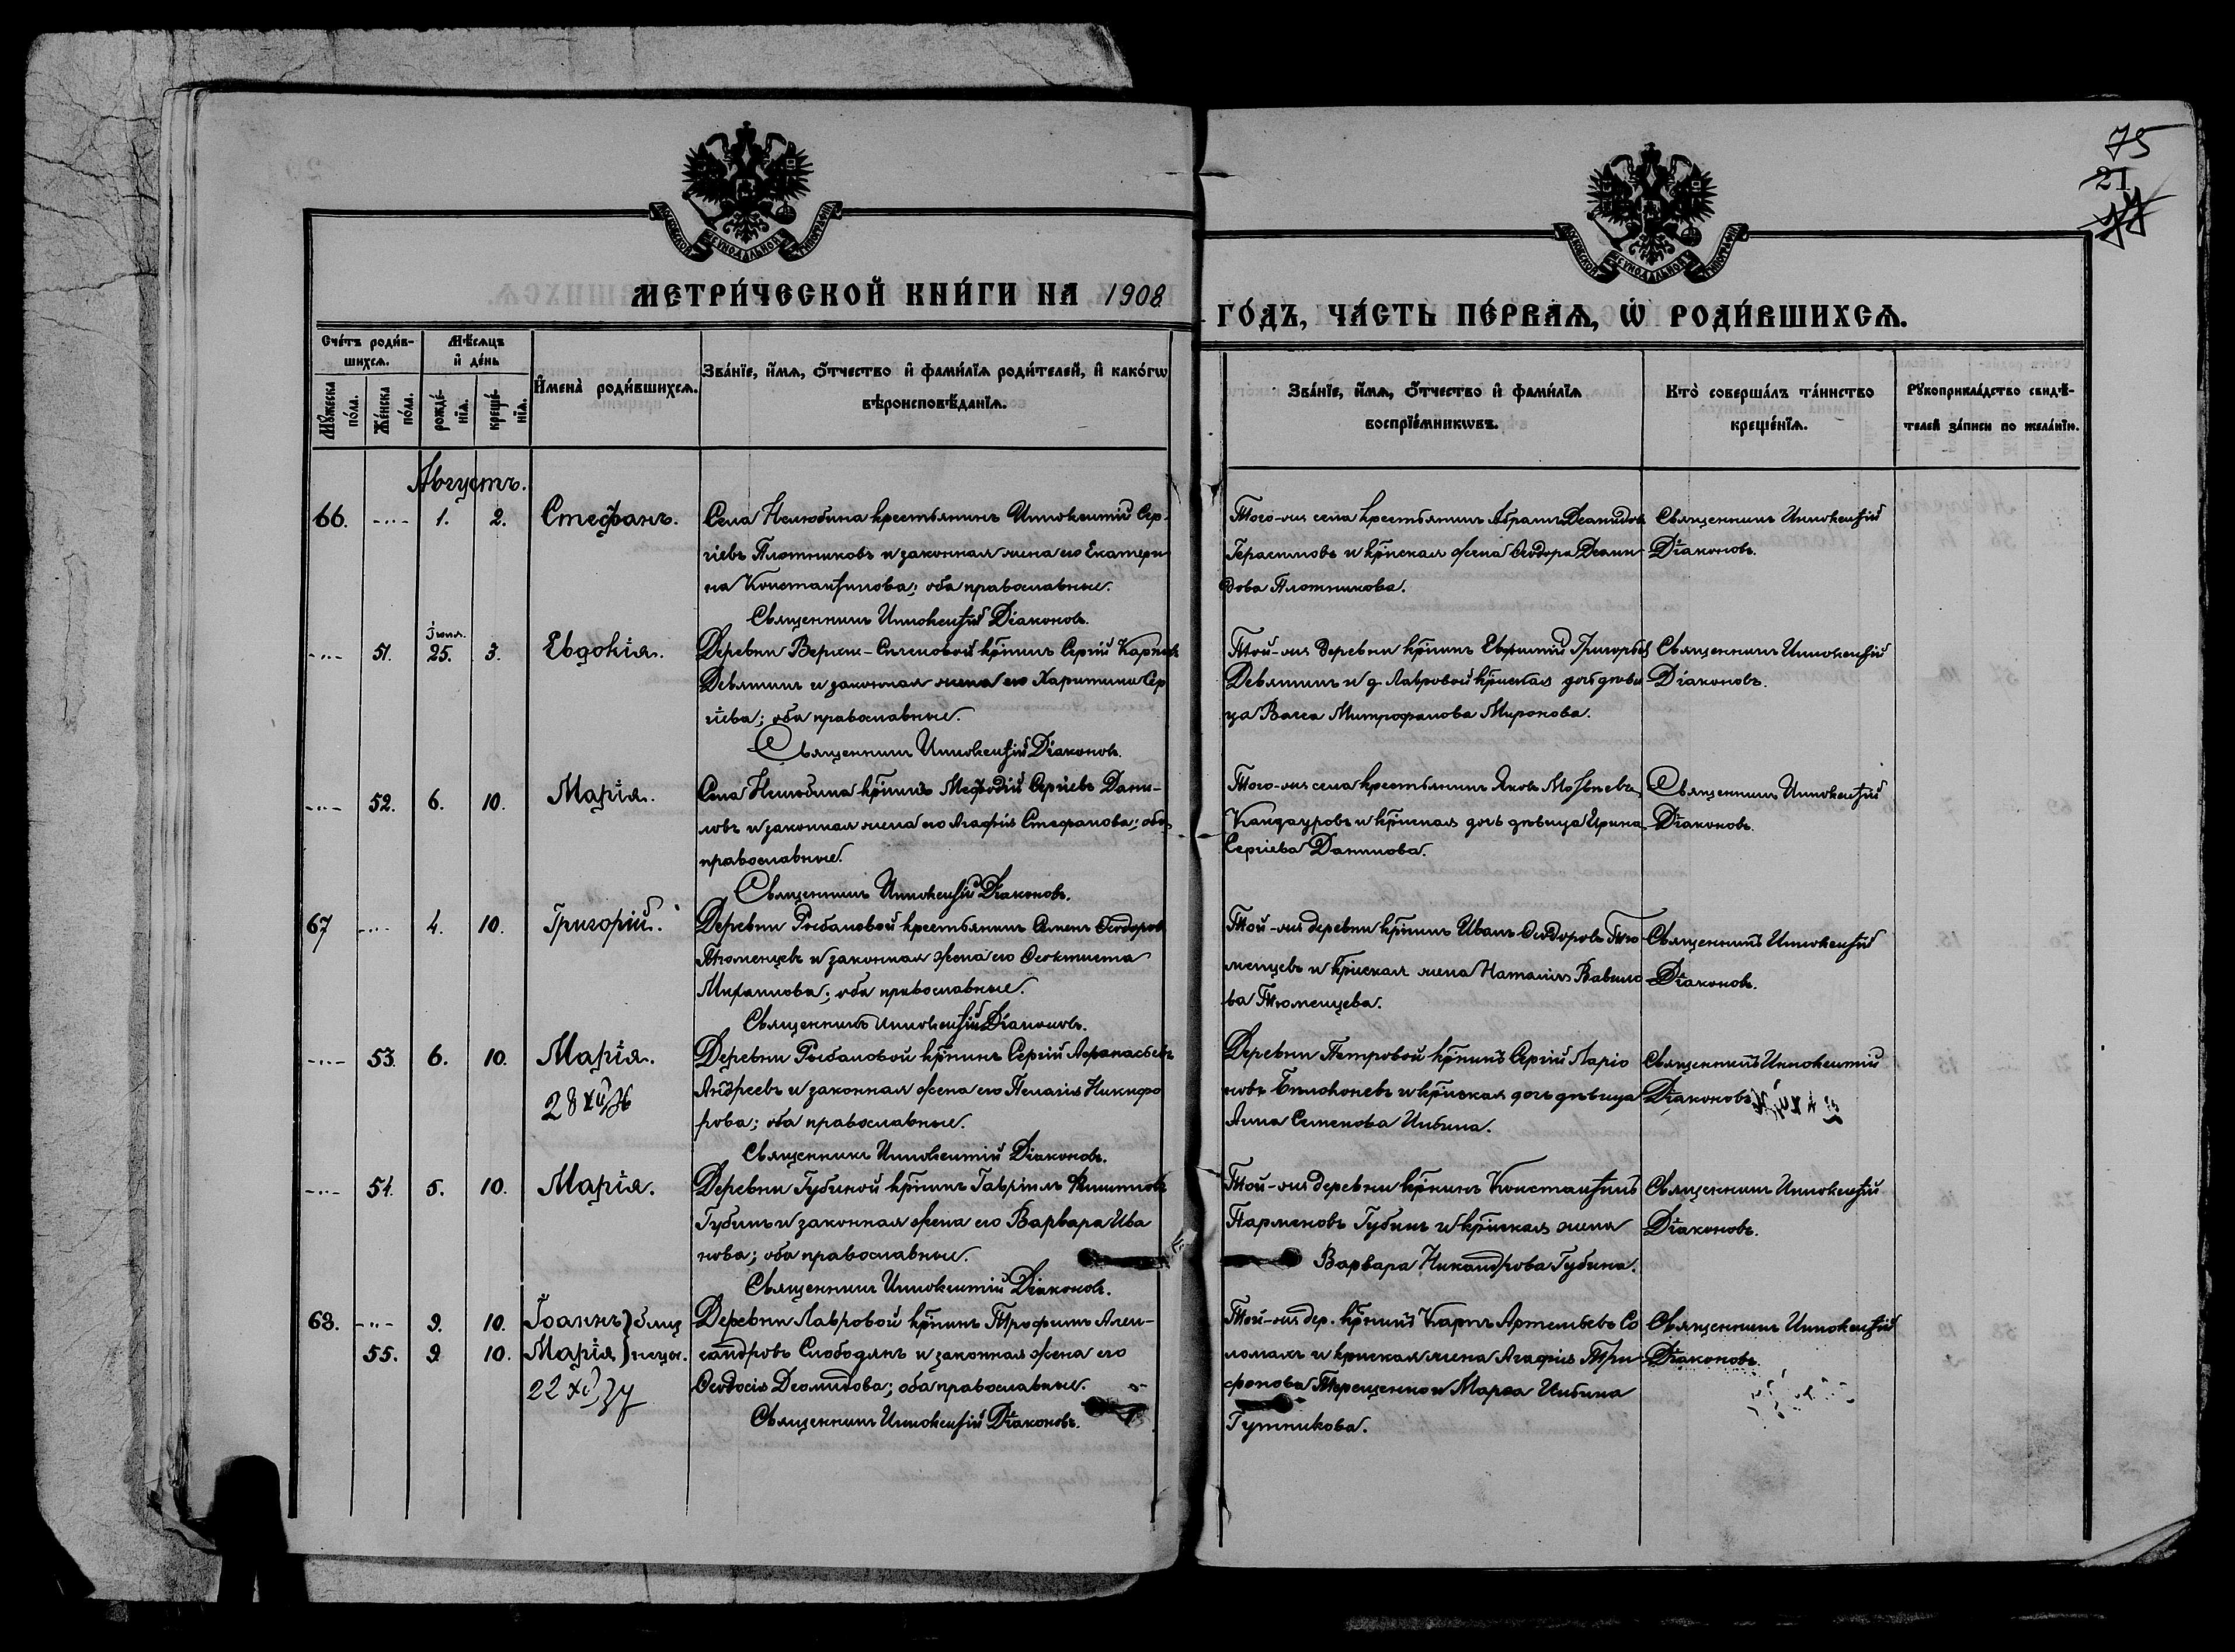 75
21
МОСКОВСКОЙ СѴНОДАЛЬНОЙ ТИПОГРАФІИ
МЕТРИ́ЧЕСКОЙ КНИ́ГИ НА 1908
МОСКОВСКОЙ СѴНОДАЛЬНОЙ ТИПОГРАФІИ
ГО́ДЪ, ЧА́СТЬ ПЕ́РВАѦ, Ѡ҆ РОДИ́ВШИХСѦ.
Сче́тъ роди́в-
шихсѧ.
Мꙋ́жеска по́ла.
Же́нска по́ла.
Мѣ́сѧцъ
и҆ де́нь
рожде́-
нїѧ.
креще́-
нїѧ.
И҆мена̀ роди́вшихсѧ.
Зва́нїе, и҆́мѧ, ѻ҆́тчество и҆ фами́лїѧ роди́телей, и҆ како́гѡ
вѣроисповѣ́данїѧ.
Зва́нїе, и҆́мѧ, ѻ҆́тчество и҆ фами́лїѧ
воспрїе́мникѡвъ.
Кто̀ соверша́лъ та́инство
креще́нїѧ.
Рꙋкоприкла́дство свидѣ́-
телей за́писи по жела́нїю.
Августъ.
66. -..- 1. 2. Стефанъ.
Села Нелюбина крестьянинъ Иннокентій Сер-
гіевъ Плотниковъ и законная жена его Екатери-
на Константинова; оба православные.
Священникъ Иннокентій Діаконовъ.
Того-же села крестьянинъ Абрамъ Деамидовъ
Герасимовъ и кр҃нская жена Ѳеодора Деами-
дова Плотникова.
Священникъ Иннокентій
Діаконовъ.
-..- 51. Іюля. 25. 3. Евдокія.
Деревни Верхне-Сеченовой кр҃нинъ Сергій Карповъ
Девятинъ и законная жена его Харитина Сер
гіева; оба православные.
Священникъ Иннокентій Діаконовъ.
Той-же деревни кр҃нинъ Евфимій Григорьевъ
Девятинъ и д. Лавровой кр҃нская дочь дѣви
ца Васса Митрофанова Миронова.
Священникъ Иннокентій
Діаконовъ.
-..- 52. 6. 10. Марія.
Села Нелюбина кр҃нинъ Меѳодій Сергіевъ Дани-
ловъ и законная жена его Агафія Стефанова; оба
православные.
Священникъ Иннокентій Діаконовъ.
Того-же села крестьянинъ Яковъ Моѵсеевъ
Кандауровъ и кр҃нская дочь дѣвица Ирина
Сергіева Данилова.
Священникъ Иннокентій
Діаконовъ.
67 -..- 4. 10. Григорій.
Деревни Рыбаловой крестьянинъ Семенъ Ѳеодоровъ
Тюменцевъ и законная жена его Ѳеоктиста
Михаилова; оба православные.
Священникъ Иннокентій Діаконовъ.
Той-же деревни кр҃нинъ Иванъ Ѳеодоровъ Тю
менцевъ и кр҃нская жена Наталія Вавило
ва Тюменцева.
Священникъ Иннокентій
Діаконовъ.
-..- 53. 6. 10. Марія.
28
Деревни Рыбаловой кр҃нинъ Сергій Аѳанасьевъ
Андреевъ и законная жена его Пелагія Никифо
рова; оба православные.
Священникъ Иннокентій Діаконовъ.
Деревни Петровой кр҃нинъ Сергій Ларіо
новъ Бѣлоконевъ и кр҃нская дочь дѣвица
Анна Семенова Инбина.
Священникъ Иннокентій
Діаконовъ
-..- 54. 5. 10. Марія.
Деревни Губиной кр҃нинъ Гавріилъ Филипповъ
Губинъ и законная жена его Варвара Ива
нова; оба православные.
Священникъ Иннокентій Діаконовъ.
Той-же деревни кр҃нинъ Константинъ
Парменовъ Губинъ и кр҃нская жена
Варвара Никандрова Губина.
Священникъ Иннокентій
Діаконовъ.
68. -..- 9. 10. Іоаннъ } близ
55. 9 10. Марія } нецы.
22
Деревни Лавровой кр҃нинъ Трофимъ Алек-
сандровъ Слободянъ и законная жена его
Ѳеодосія Деомидова; оба православные.
Священникъ Иннокентій Діаконовъ.
Той-же дер. кр҃нинъ Карпъ Артемьевъ Со
ломахъ и кр҃нская жена Агафія Три
фонова Терещенко и Марѳа Инбина
Гутникова.
Священникъ Иннокентій
Діаконовъ.